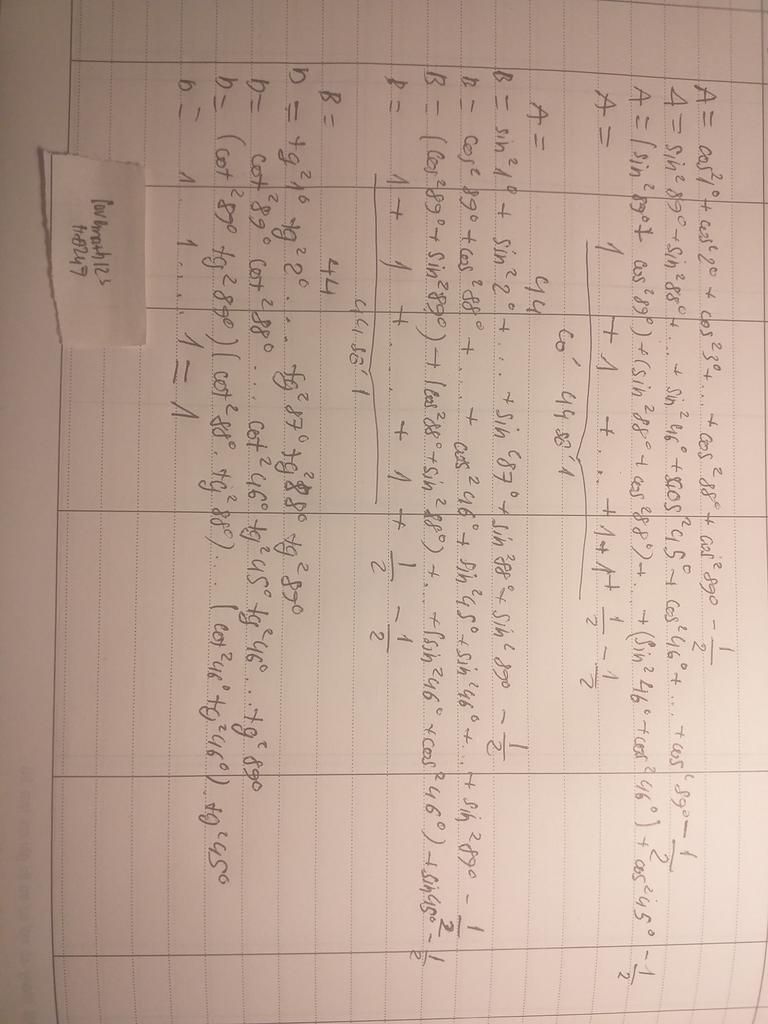 A = cos²1° + cos²2° + cos²3° + .... + cos²88° + cos²89° - 1/2
A = sin²89° + sin²88° + ... + sin²46° + cos²45° + cos²46° + .... + cos²89° - 1/2
A = (sin²89° + cos²89°) + (sin²88° + cos²88°) + .. + (sin²46° + cos²46°) + cos²45° - 1/2
A = 1 + 1 + .. + 1 + 1 + 1/2 - 1/2
có 44 số 1
A = 44
B = sin²1° + sin²2° + ... + sin²87° + sin²88° + sin²89° - 1/2
B = cos²89° + cos²88° + .... + cos²46° + sin²45° + sin²46° + ... + sin²89° - 1/2
B = (cos²89° + sin²89°) + (cos²88° + sin²88°) + ... + (sin²46° + cos²46°) + sin45° - 1/2
B = 1 + 1 + ..... + 1 + 1/2 - 1/2
44 số 1
B = 44
D = tg²1° tg²2° ... tg²87° tg²88° tg²89°
D = cot²89° cot²88° ... cot²46° tg²45° tg²46° ... tg²89°
D = (cot²89° tg²89°) (cot²88° . tg²88°) ... (cot²46° tg²46°) . tg²45°
D = 1 . 1 ..... 1 = 1